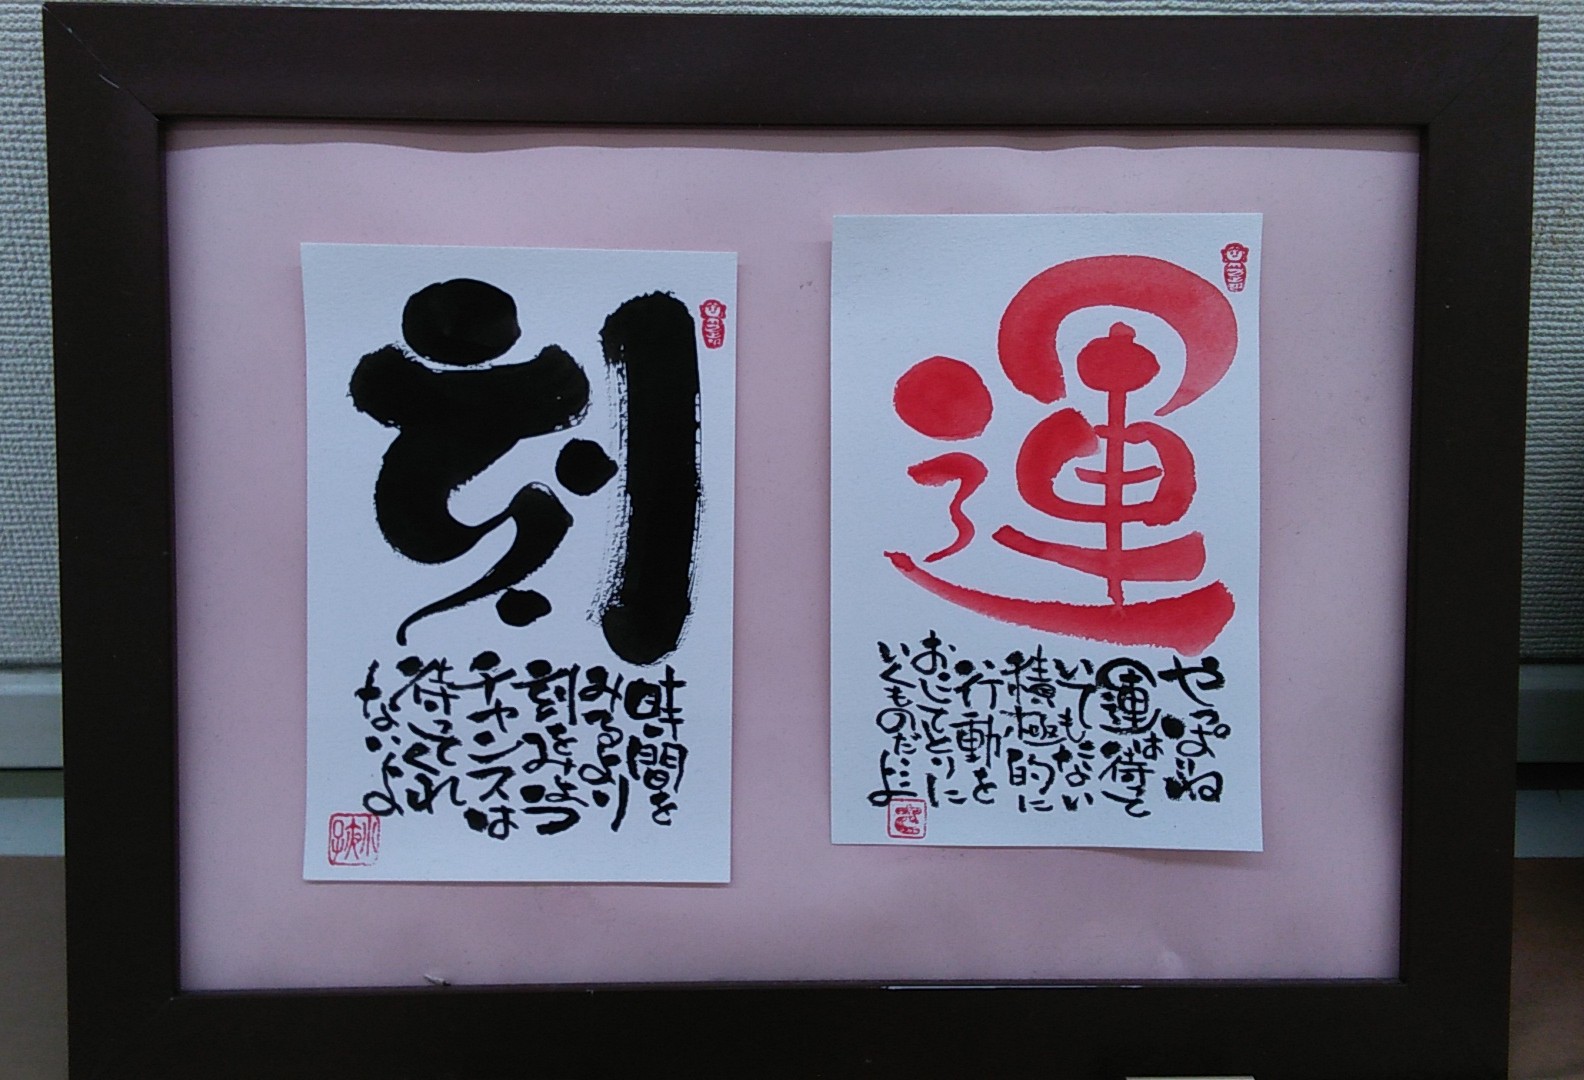 運
やっぱりね
運は待って
いてもこない
積極的に
行動を
おこしてとりに
いくものだ…よ
刻
時間を
みるより
刻をみよう
チャンスは
待ってくれ
ないよ